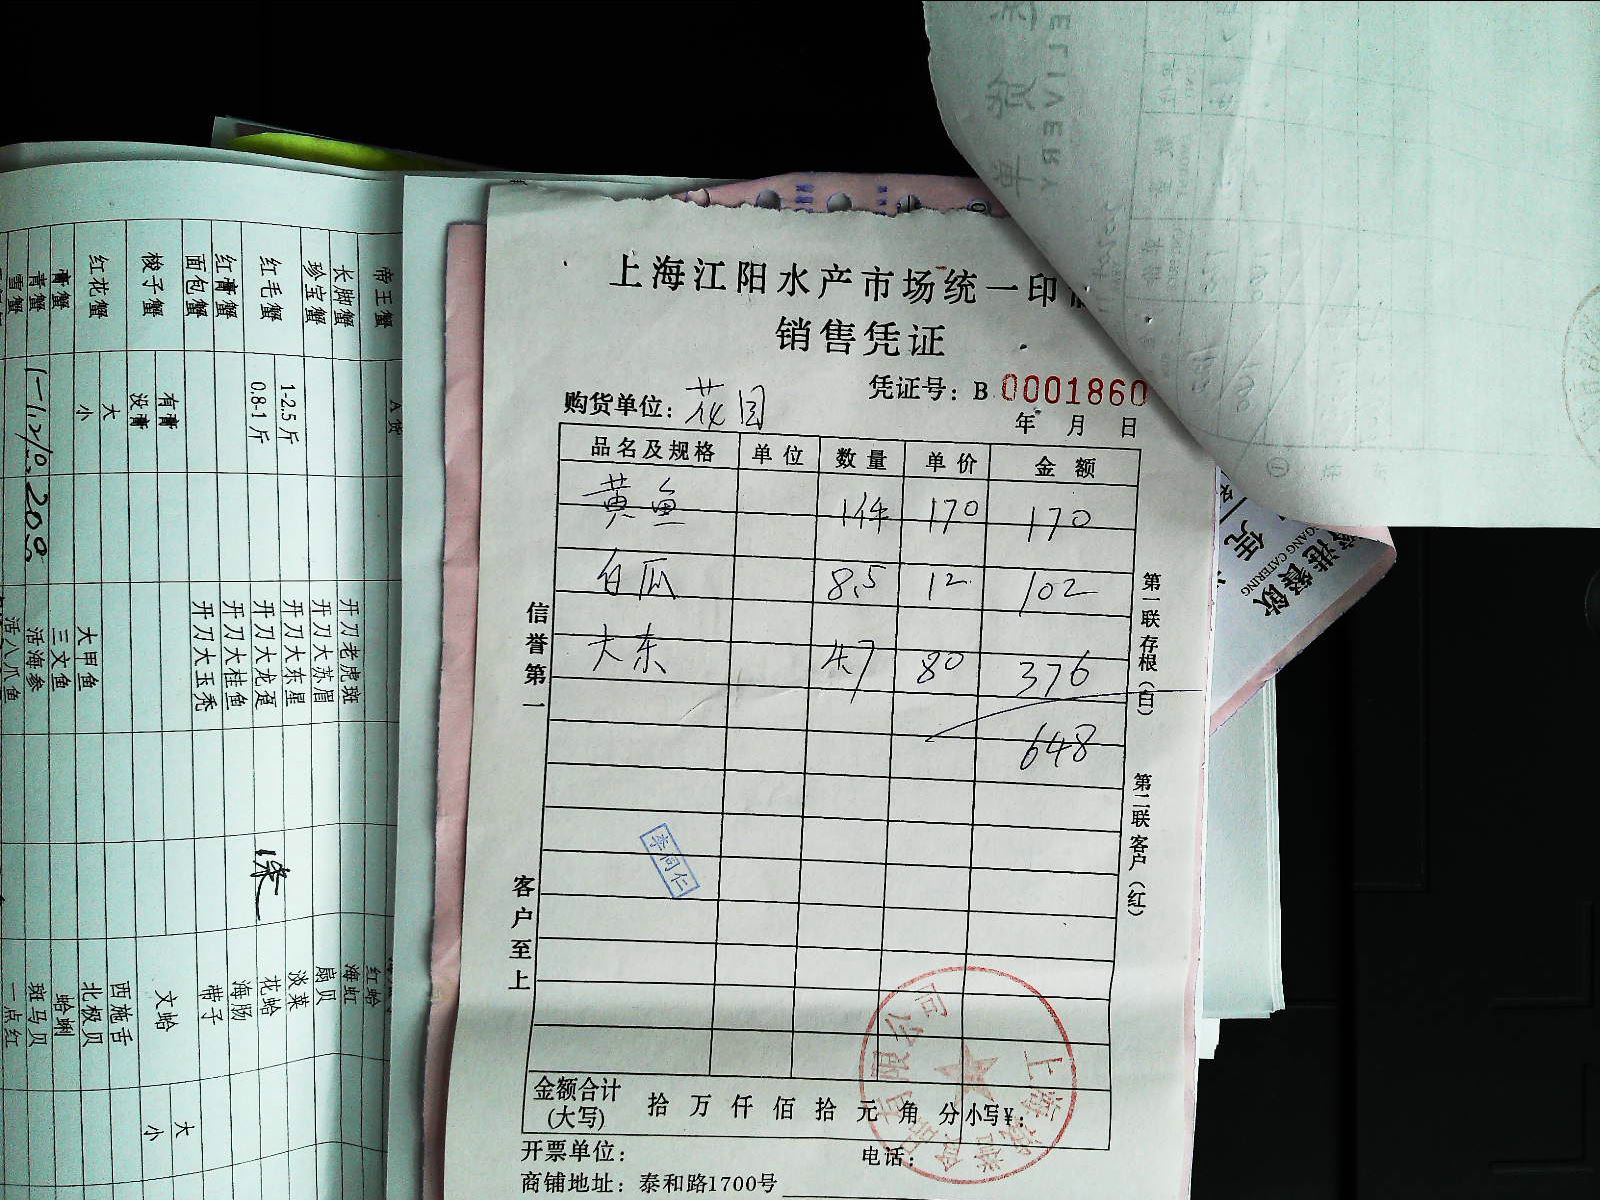 上海江阳水产市场统一印
销售凭证
凭证号：B 0001860
购货单位：花园
年 月 日
品名及规格 单位 数量 单价 金额
黄鱼 1件 170 170
白瓜 8.5 12 102
大东 4.7 80 376
648
信誉第一
客户至上
第一联存根（白）
第二联客户（红）
李同仁
金额合计(大写) 拾 万 仟 佰 拾 元 角 分 小写¥：
开票单位：
电话：
商铺地址：泰和路1700号
有限公司
上海
帝王蟹 A货
长脚蟹
珍宝蟹
红毛蟹 1-2.5斤
0.8-1斤
红膏蟹
面包蟹
梭子蟹 有膏
没膏
红花蟹 大
小
膏蟹
青蟹
雪蟹
开刀老虎斑
开刀大苏眉
开刀大东星
开刀大龙趸
开刀大桂鱼
开刀大玉秃
大甲鱼
三文鱼
活海参
活八爪鱼
红蛤
海虹
扇贝
淡菜
花蛤
海肠
带子
文蛤 大
小
西施舌
北极贝
蛤蜊
斑马贝
一点红
DELIVERY
GANG CATERING
港餐飲